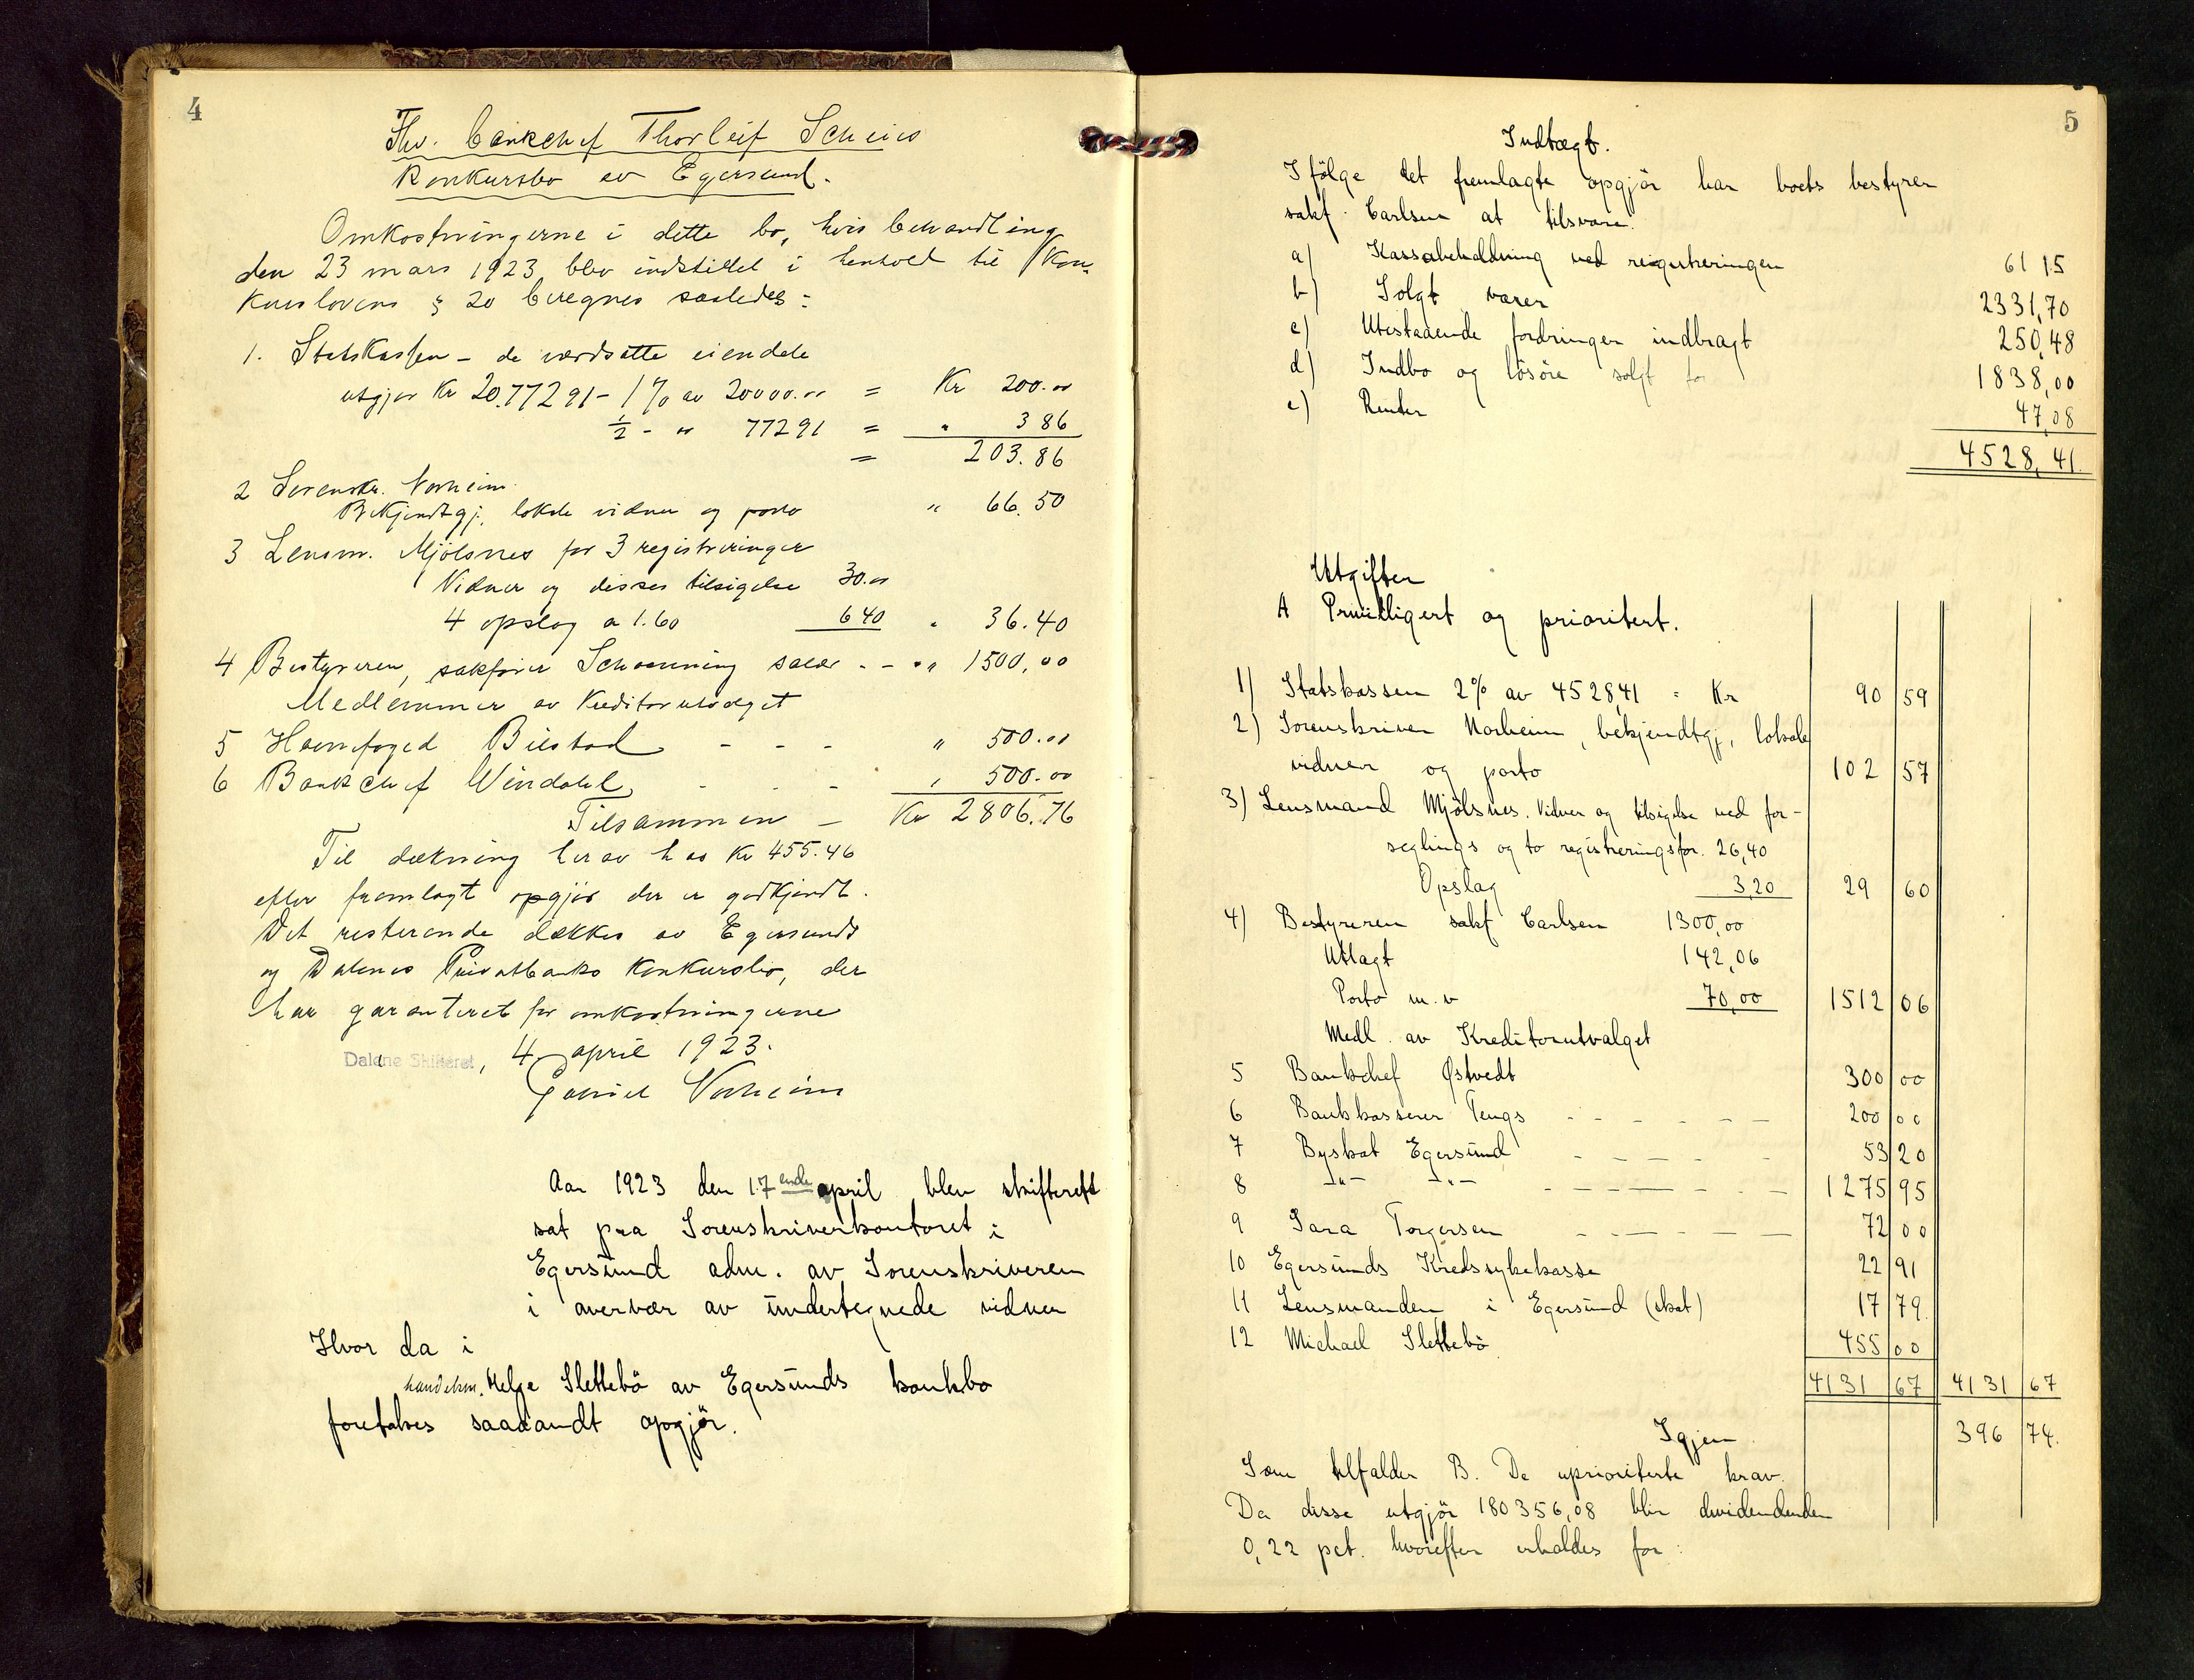 4
Fhv. bankchef Thorleif Scheies
Konkursbo av Egersund.
Omkostningerne i dette bo, hvis behandling
den 23 mars 1923 blev indstillet i henhold til Kon-
kurslovens § 20 beregnes saaledes:
1. Statskassen - de værdsatte eiendele
utgjør Kr 20.772 91 - 1 % av 20000.00 = Kr 200.00
½ - " 772 91 = " 3 86
= 203.86
2 Sorenskr. Norheim
Bekjendtgj., lokale vidner og porto " 66.50
3 Lensm. Mjölsnes for 3 registreringer
Vidner og disses tilsigelse 30.00
4 opslag a 1.60 6 40 " 36.40
4 Bestyreren, sakfører Schanning salær - - " 1500,00
Medlemmer av Kreditorutvalget
5 Havnefoged Bilstad - - - " 500.00
6 Bankchef Vindahl - - - " 500.00
Tilsammen - Kr 2806.76
Til dækning herav has Kr 455.46
efter fremlagt opgjör der er godkjendt.
Det resterende dækkes av Egersunds
og Dalenes Privatbanks Konkursbo, der
har garanteret for omkostningerne
Dalene Skifteret, 4 april 1923.
Gabriel Norheim
Aar 1923 den 17ende april blev skifterett
sat paa Sorenskriverkontoret i
Egersund adm. av Sorenskriveren
i overvær av undertegnede vidner
Hvor da i
handelsm. Helge Slettebö av Egersunds konkbo
foretokes saadandt opgjör.
5
Indtægt.
Ifölge det fremlagte opgjör har boets bestyrer
sakf. Carlsen at tilsvare.
a) Kassabeholdning ved registreringen 61 15
b) Solgt varer 2331,70
c) Utestaaende fordringer indbragt 250,48
d) Indbo og lösöre solgt for 1838,00
e) Renter 47,08
4528,41
Utgifter
A Privilligert og prioritert.
1) Statskassen 2% av 4528,41 = Kr 90 59
2) Sorenskriver Norheim, bekjendtgj, lokale
vidner og porto 102 57
3) Lensmand Mjölsnes. Vidner og tilsigelse ved for-
seglings og to registreringsfor. 26,40
Opslag 3,20 29 60
4) Bestyreren sakf Carlsen 1300,00
Utlagt 142,06
Porto m.v 70,00 1512 06
Medl. av Kreditorutvalget
5 Bankchef Østvedt 300 00
6 Bankkasserer Tengs - - - - - - 200 00
7 Byskat Egersund - - - - - 53 20
8 -"- -"- - - - - - - 1275 95
9 Sara Torgersen - - - - - - 72 00
10 Egersunds Kredssykekasse 22 91
11 Lensmanden i Egersund (skat) 17 79
12 Michael Slettebö 455 00
4131 67 4131 67
Igjen 396 74.
Som tilfalder B. De uprioriterte krav.
Da disse utgjör 180356,08 blir dividendenden
0,22 pct. hvorefter erholdes for: